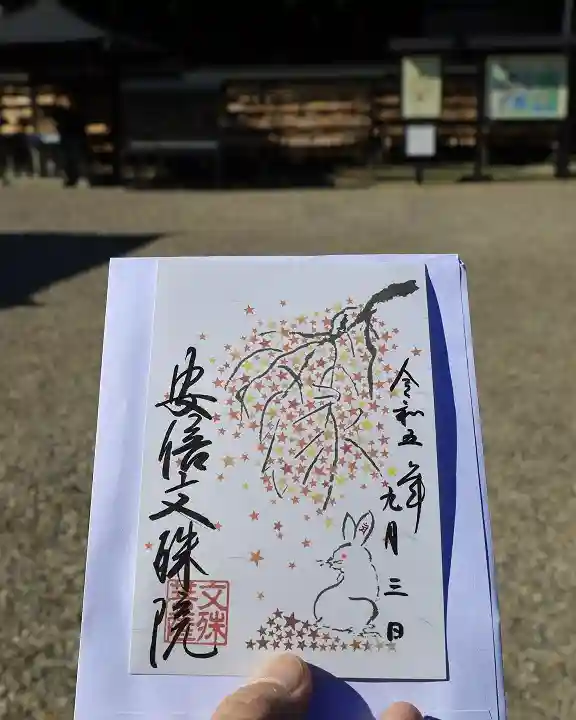 令和五年九月三日
安倍文殊院
文殊